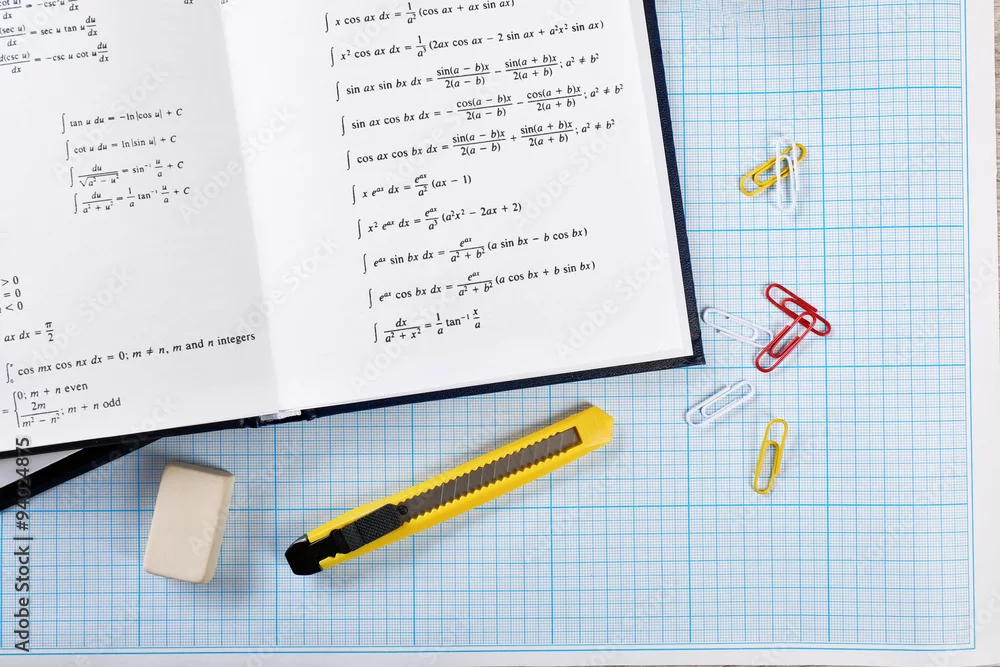 cot u)/dx = −csc² u du/dx
(sec u)/dx = sec u tan u du/dx
d(csc u)/dx = −csc u cot u du/dx
∫ tan u du = −ln|cos u| + C
∫ cot u du = ln|sin u| + C
∫ du/√(a² − u²) = sin⁻¹ u/a + C
∫ du/(a² + u²) = 1/a tan⁻¹ u/a + C
> 0
= 0
< 0
ax dx = π/2
cos mx cos nx dx = 0; m ≠ n, m and n integers
= {0; m + n even
2m/(m² − n²); m + n odd
∫ x cos ax dx = 1/a² (cos ax + ax sin ax)
∫ x² cos ax dx = 1/a³ (2ax cos ax − 2 sin ax + a²x² sin ax)
∫ sin ax sin bx dx = sin(a − b)x/2(a − b) − sin(a + b)x/2(a + b); a² ≠ b²
∫ sin ax cos bx dx = − cos(a − b)x/2(a − b) − cos(a + b)x/2(a + b); a² ≠ b²
∫ cos ax cos bx dx = sin(a − b)x/2(a − b) + sin(a + b)x/2(a + b); a² ≠ b²
∫ x eᵃˣ dx = eᵃˣ/a² (ax − 1)
∫ x² eᵃˣ dx = eᵃˣ/a³ (a²x² − 2ax + 2)
∫ eᵃˣ sin bx dx = eᵃˣ/(a² + b²) (a sin bx − b cos bx)
∫ eᵃˣ cos bx dx = eᵃˣ/(a² + b²) (a cos bx + b sin bx)
∫ dx/(a² + x²) = 1/a tan⁻¹ x/a
Adobe Stock | #94024875